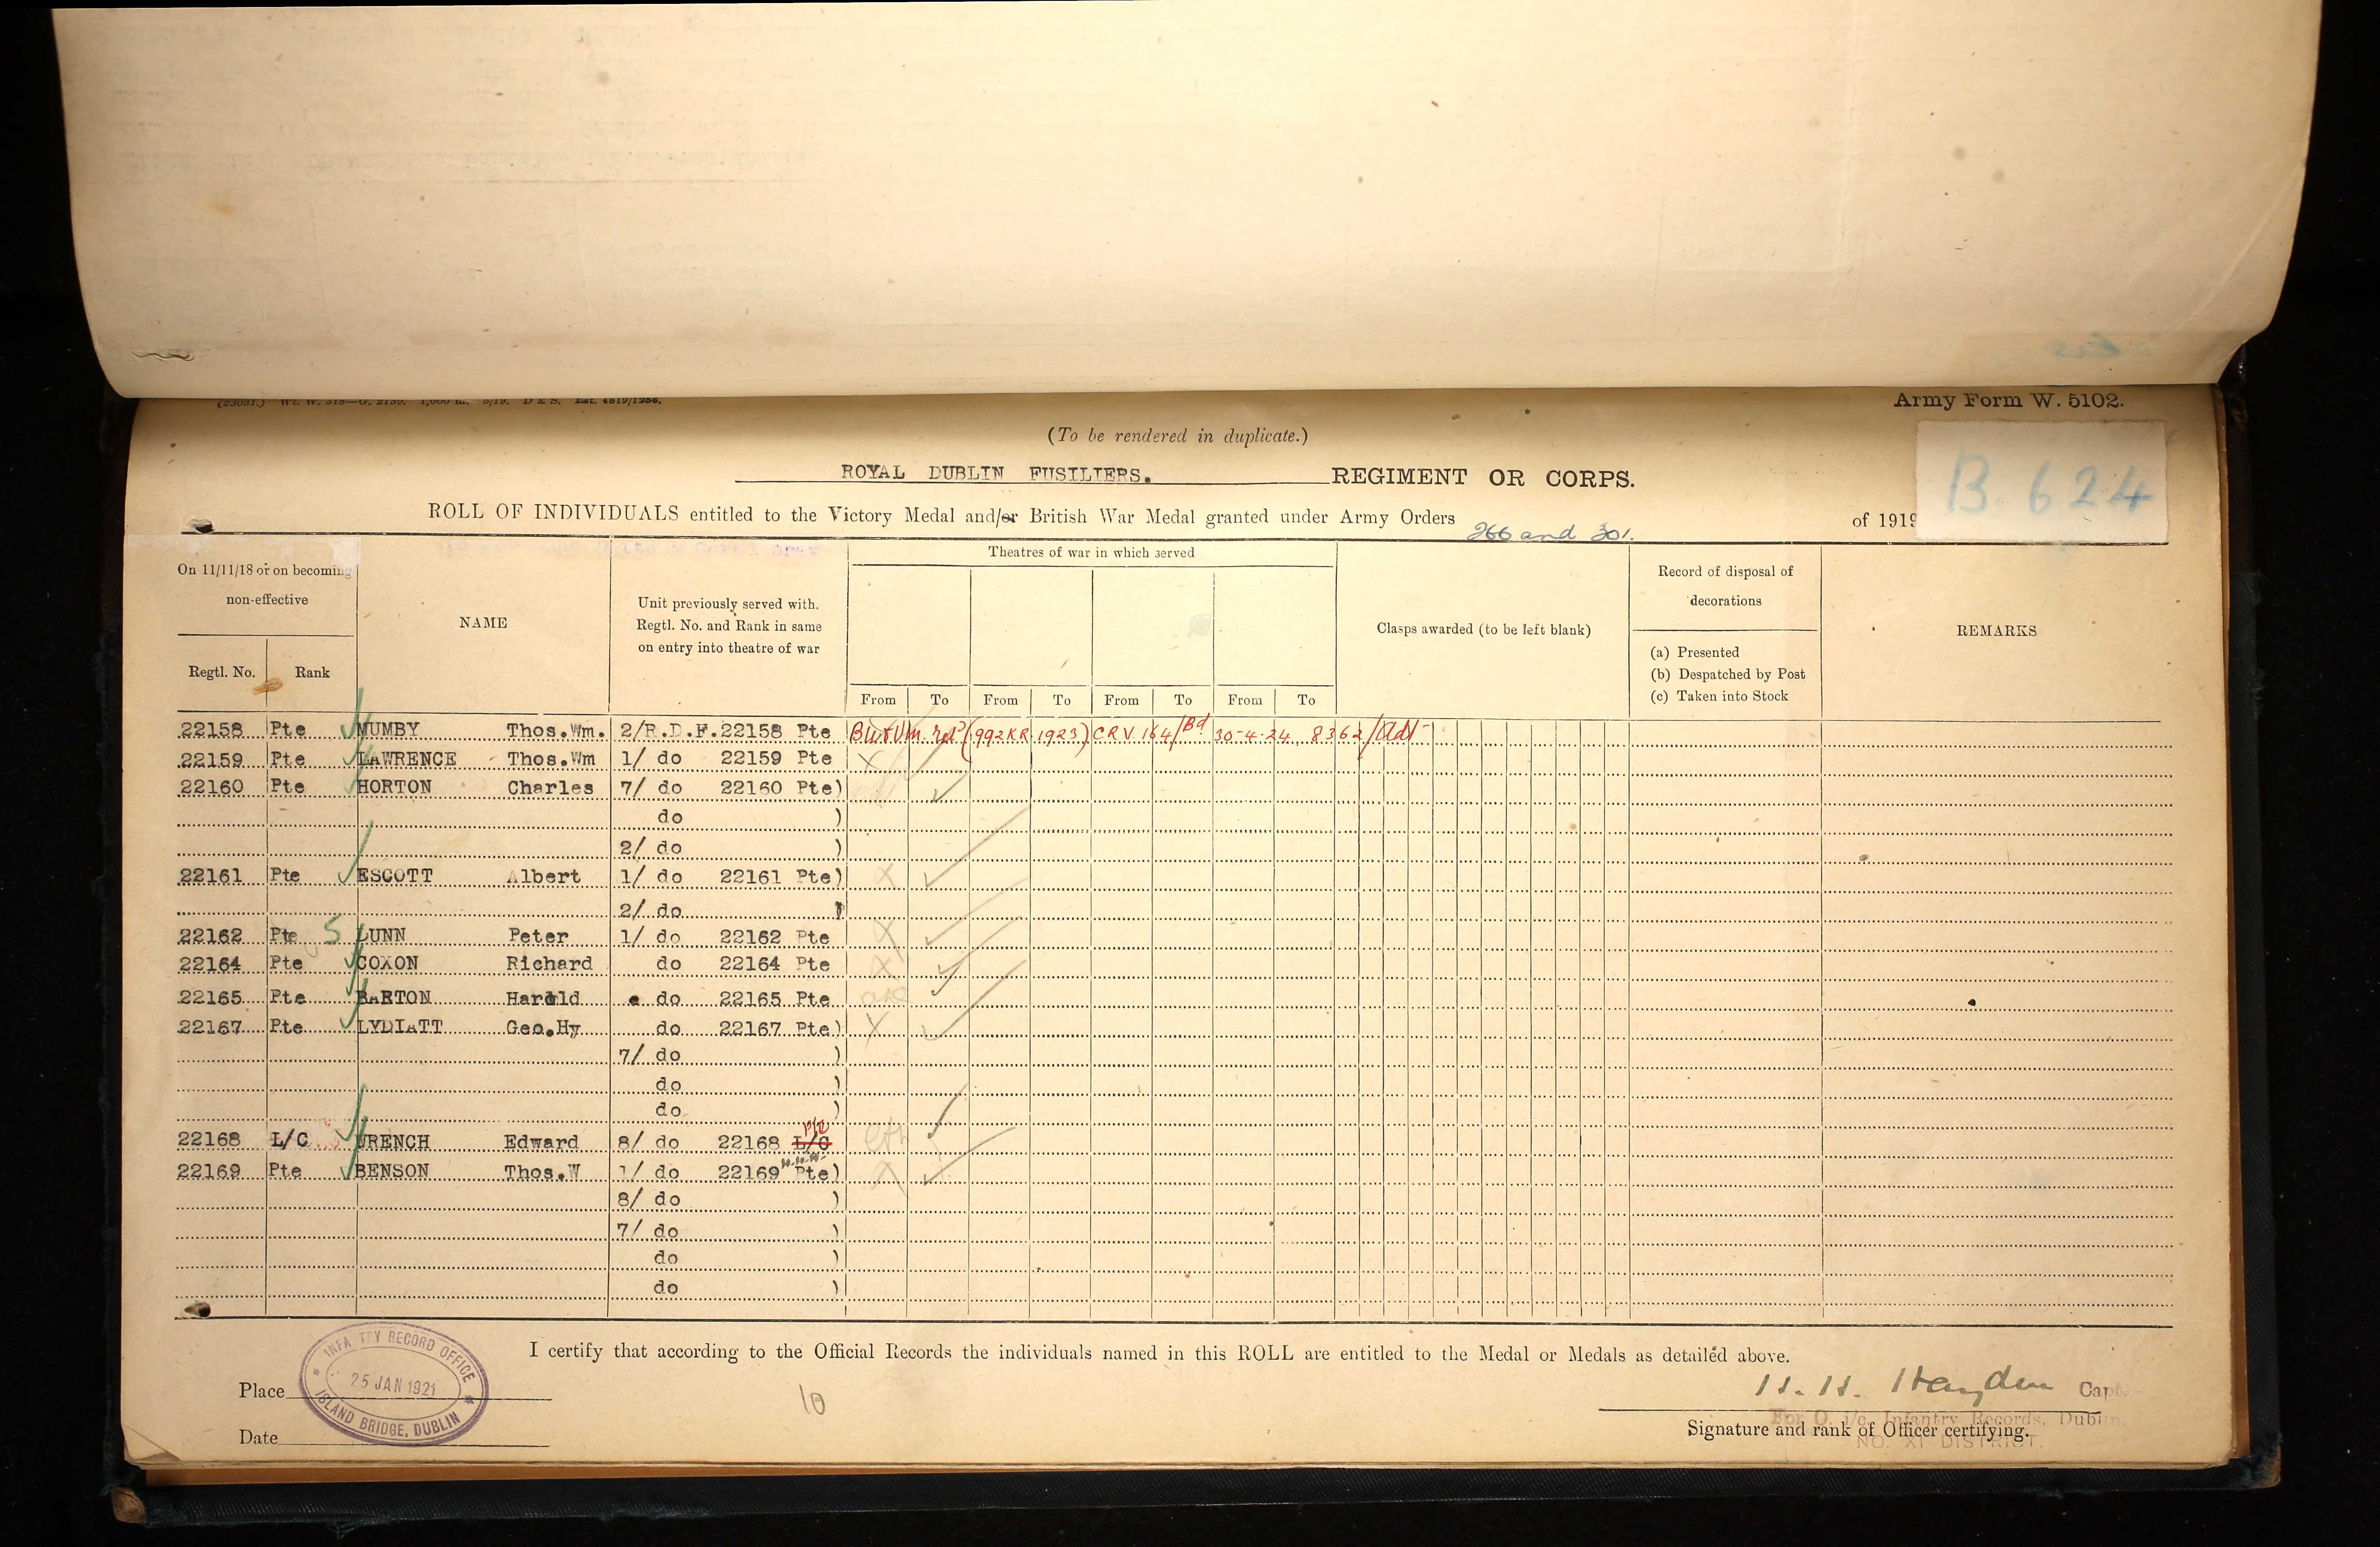 Army Form W. 5102.
(To be rendered in duplicate.)
ROYAL DUBLIN FUSILIERS. REGIMENT OR CORPS.
B. 624
ROLL OF INDIVIDUALS entitled to the Victory Medal and/or British War Medal granted under Army Orders 266 and 301. of 1919
On 11/11/18 or on becoming non-effective
Regtl. No.
Rank
NAME
Unit previously served with.
Regtl. No. and Rank in same
on entry into theatre of war
Theatres of war in which served
From To From To From To From To
Clasps awarded (to be left blank)
Record of disposal of
decorations
(a) Presented
(b) Despatched by Post
(c) Taken into Stock
REMARKS
22158 Pte MUMBY Thos.Wm. 2/R.D.F.22158 Pte (992KR 1923) CRV 164/Bd 30-4-24 8362/Adt
22159 Pte LAWRENCE Thos.Wm 1/ do 22159 Pte X
22160 Pte HORTON Charles 7/ do 22160 Pte)
do )
2/ do )
22161 Pte ESCOTT Albert 1/ do 22161 Pte) X
2/ do )
22162 Pte S LUNN Peter 1/ do 22162 Pte X
22164 Pte COXON Richard do 22164 Pte X
22165 Pte BARTON Harold do 22165 Pte
22167 Pte LYDIATT Geo.Hy do 22167 Pte) X
7/ do )
do )
do )
22168 L/C WRENCH Edward 8/ do 22168 L/C Pte
22169 Pte BENSON Thos.W 1/ do 22169 Pte) X
8/ do )
7/ do )
do )
do )
I certify that according to the Official Records the individuals named in this ROLL are entitled to the Medal or Medals as detailed above.
INFA TRY RECORD OFFICE
25 JAN 1921
ISLAND BRIDGE, DUBLIN
Place
Date
10
H. H. Hayden Capt.
For O. i/c. Infantry Records, Dublin.
Signature and rank of Officer certifying.
NO. XI DISTRICT.